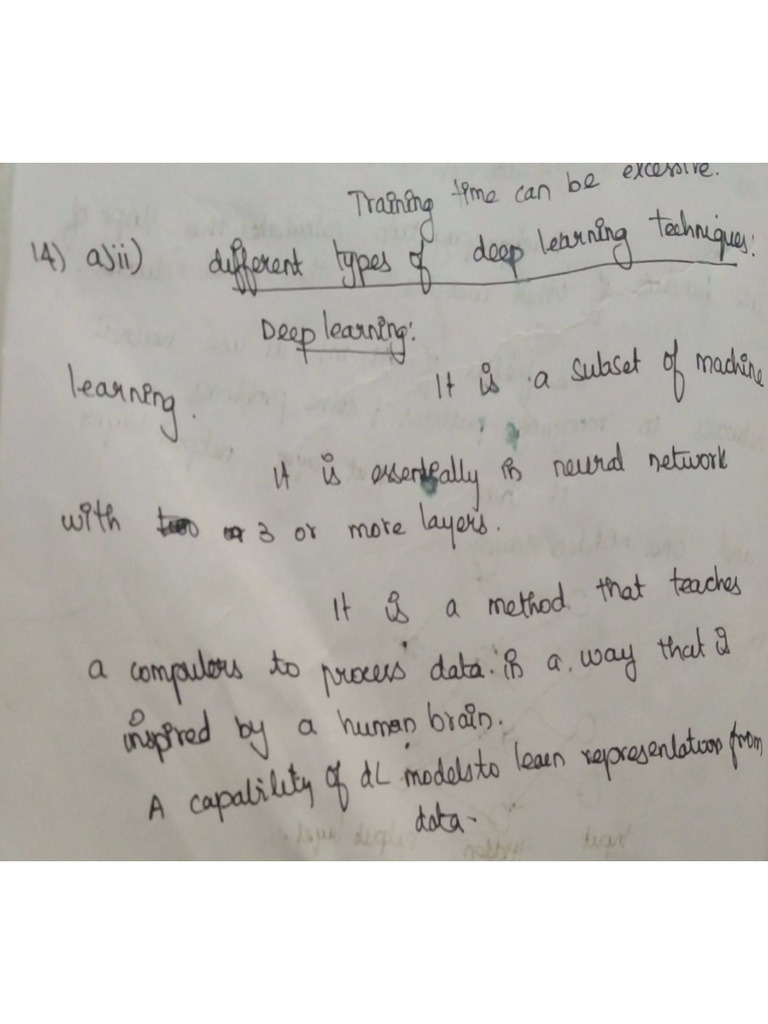 Training time can be excessive.
14) a)ii) different types of deep learning techniques:
Deep learning:
It is a subset of machine
learning.
It is essentially in neural network
with 3 or more layers.
It is a method that teaches
a computers to process data in a way that is
inspired by a human brain.
A capability of dL models to learn representation from
data.